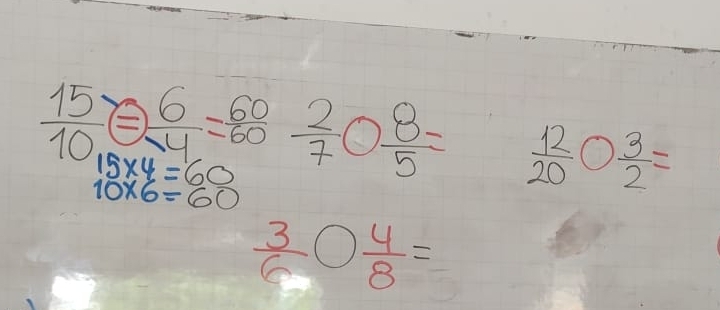 15/10 = 6/4 = 60/60
15x4=60
10x6=60
2/7 ○ 8/5 =
12/20 ○ 3/2 =
3/6 ○ 4/8 =